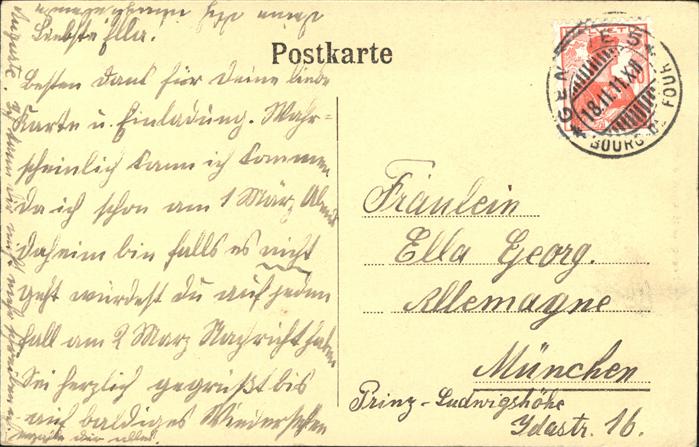 Postkarte
Liebste Ella.
Besten Dank für Deine liebe
Karte u. Einladung. Wahr=
scheinlich kann ich kommen
da ich schon am 1 März Abend
daheim bin falls es nicht
geht würdest Du auf jeden
Fall am 2 März Nachricht haben
Sei herzlich gegrüßt bis
auf baldiges Wiedersehen
Auguste.
GENÈVE
18.II.11.XII
BOURG DE FOUR
Fräulein
Ella Georg.
Allemagne
München
Prinz-Ludwigshöhe
Idastr. 16.